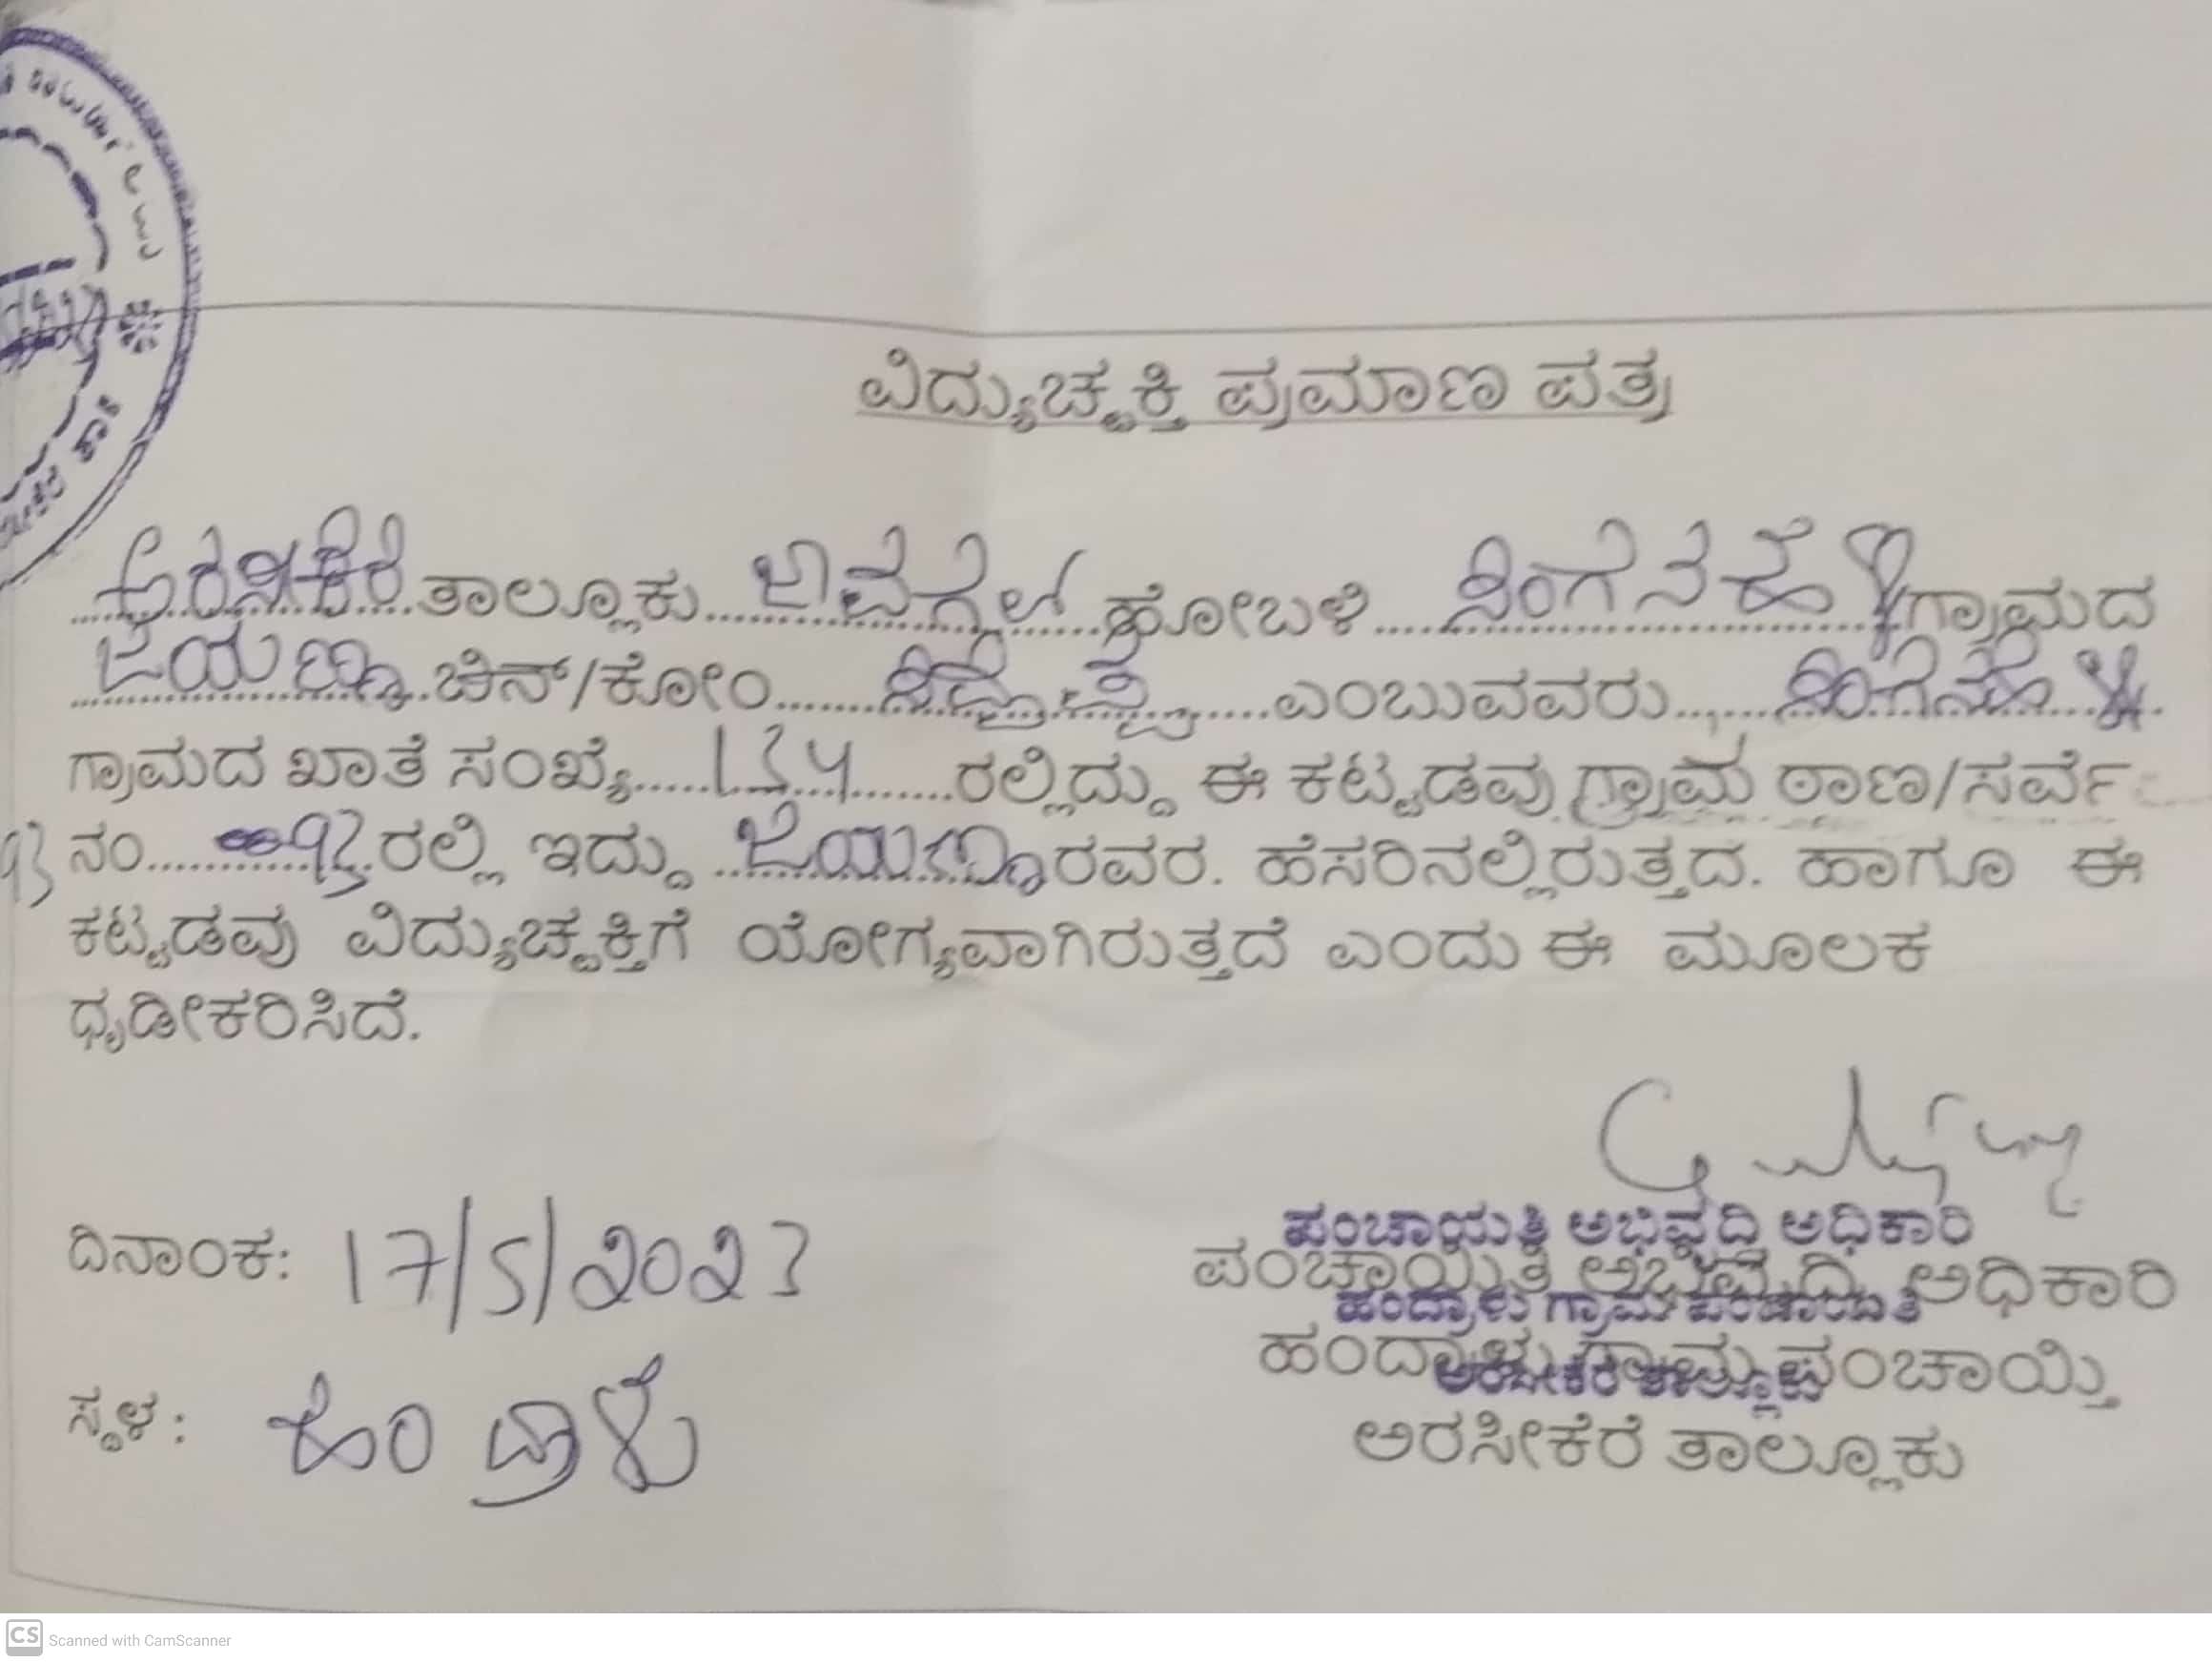 ವಿದ್ಯುಚ್ಚಕ್ತಿ ಪ್ರಮಾಣ ಪತ್ರ
ಅರಸೀಕೆರೆ ತಾಲ್ಲೂಕು ಜಾವಗಲ್ ಹೋಬಳಿ ಸಿಂಗೆನಹಳ್ಳಿ ಗ್ರಾಮದ
ಜಯಣ್ಣ ಬಿನ್/ಕೋಂ ಸಿದ್ದಪ್ಪ ಎಂಬುವವರು
ಗ್ರಾಮದ ಖಾತೆ ಸಂಖ್ಯೆ 134 ರಲ್ಲಿದ್ದು ಈ ಕಟ್ಟಡವು ಗ್ರಾಮ ಠಾಣ/ಸರ್ವೆ
ನಂ 93 ರಲ್ಲಿ ಇದ್ದು ಜಯಣ್ಣ ರವರ. ಹೆಸರಿನಲ್ಲಿರುತ್ತದ. ಹಾಗೂ ಈ
ಕಟ್ಟಡವು ವಿದ್ಯುಚ್ಚಕ್ತಿಗೆ ಯೋಗ್ಯವಾಗಿರುತ್ತದೆ ಎಂದು ಈ ಮೂಲಕ
ಧೃಡೀಕರಿಸಿದೆ.
ದಿನಾಂಕ: 17/5/2023
ಸ್ಥಳ: ಹಂದ್ರಾಳು
ಪಂಚಾಯತಿ ಅಭಿವೃದ್ಧಿ ಅಧಿಕಾರಿ
ಪಂಚಾಯಿತಿ ಅಭಿವೃದ್ಧಿ ಅಧಿಕಾರಿ
ಹಂದ್ರಾಳು ಗ್ರಾಮ ಪಂಚಾಯತಿ
ಹಂದ್ರಾಳು ಗ್ರಾಮ ಪಂಚಾಯ್ತಿ
ಅರಸೀಕೆರೆ ತಾಲ್ಲೂಕು
ಅರಸೀಕೆರೆ ತಾಲ್ಲೂಕು
CS Scanned with CamScanner